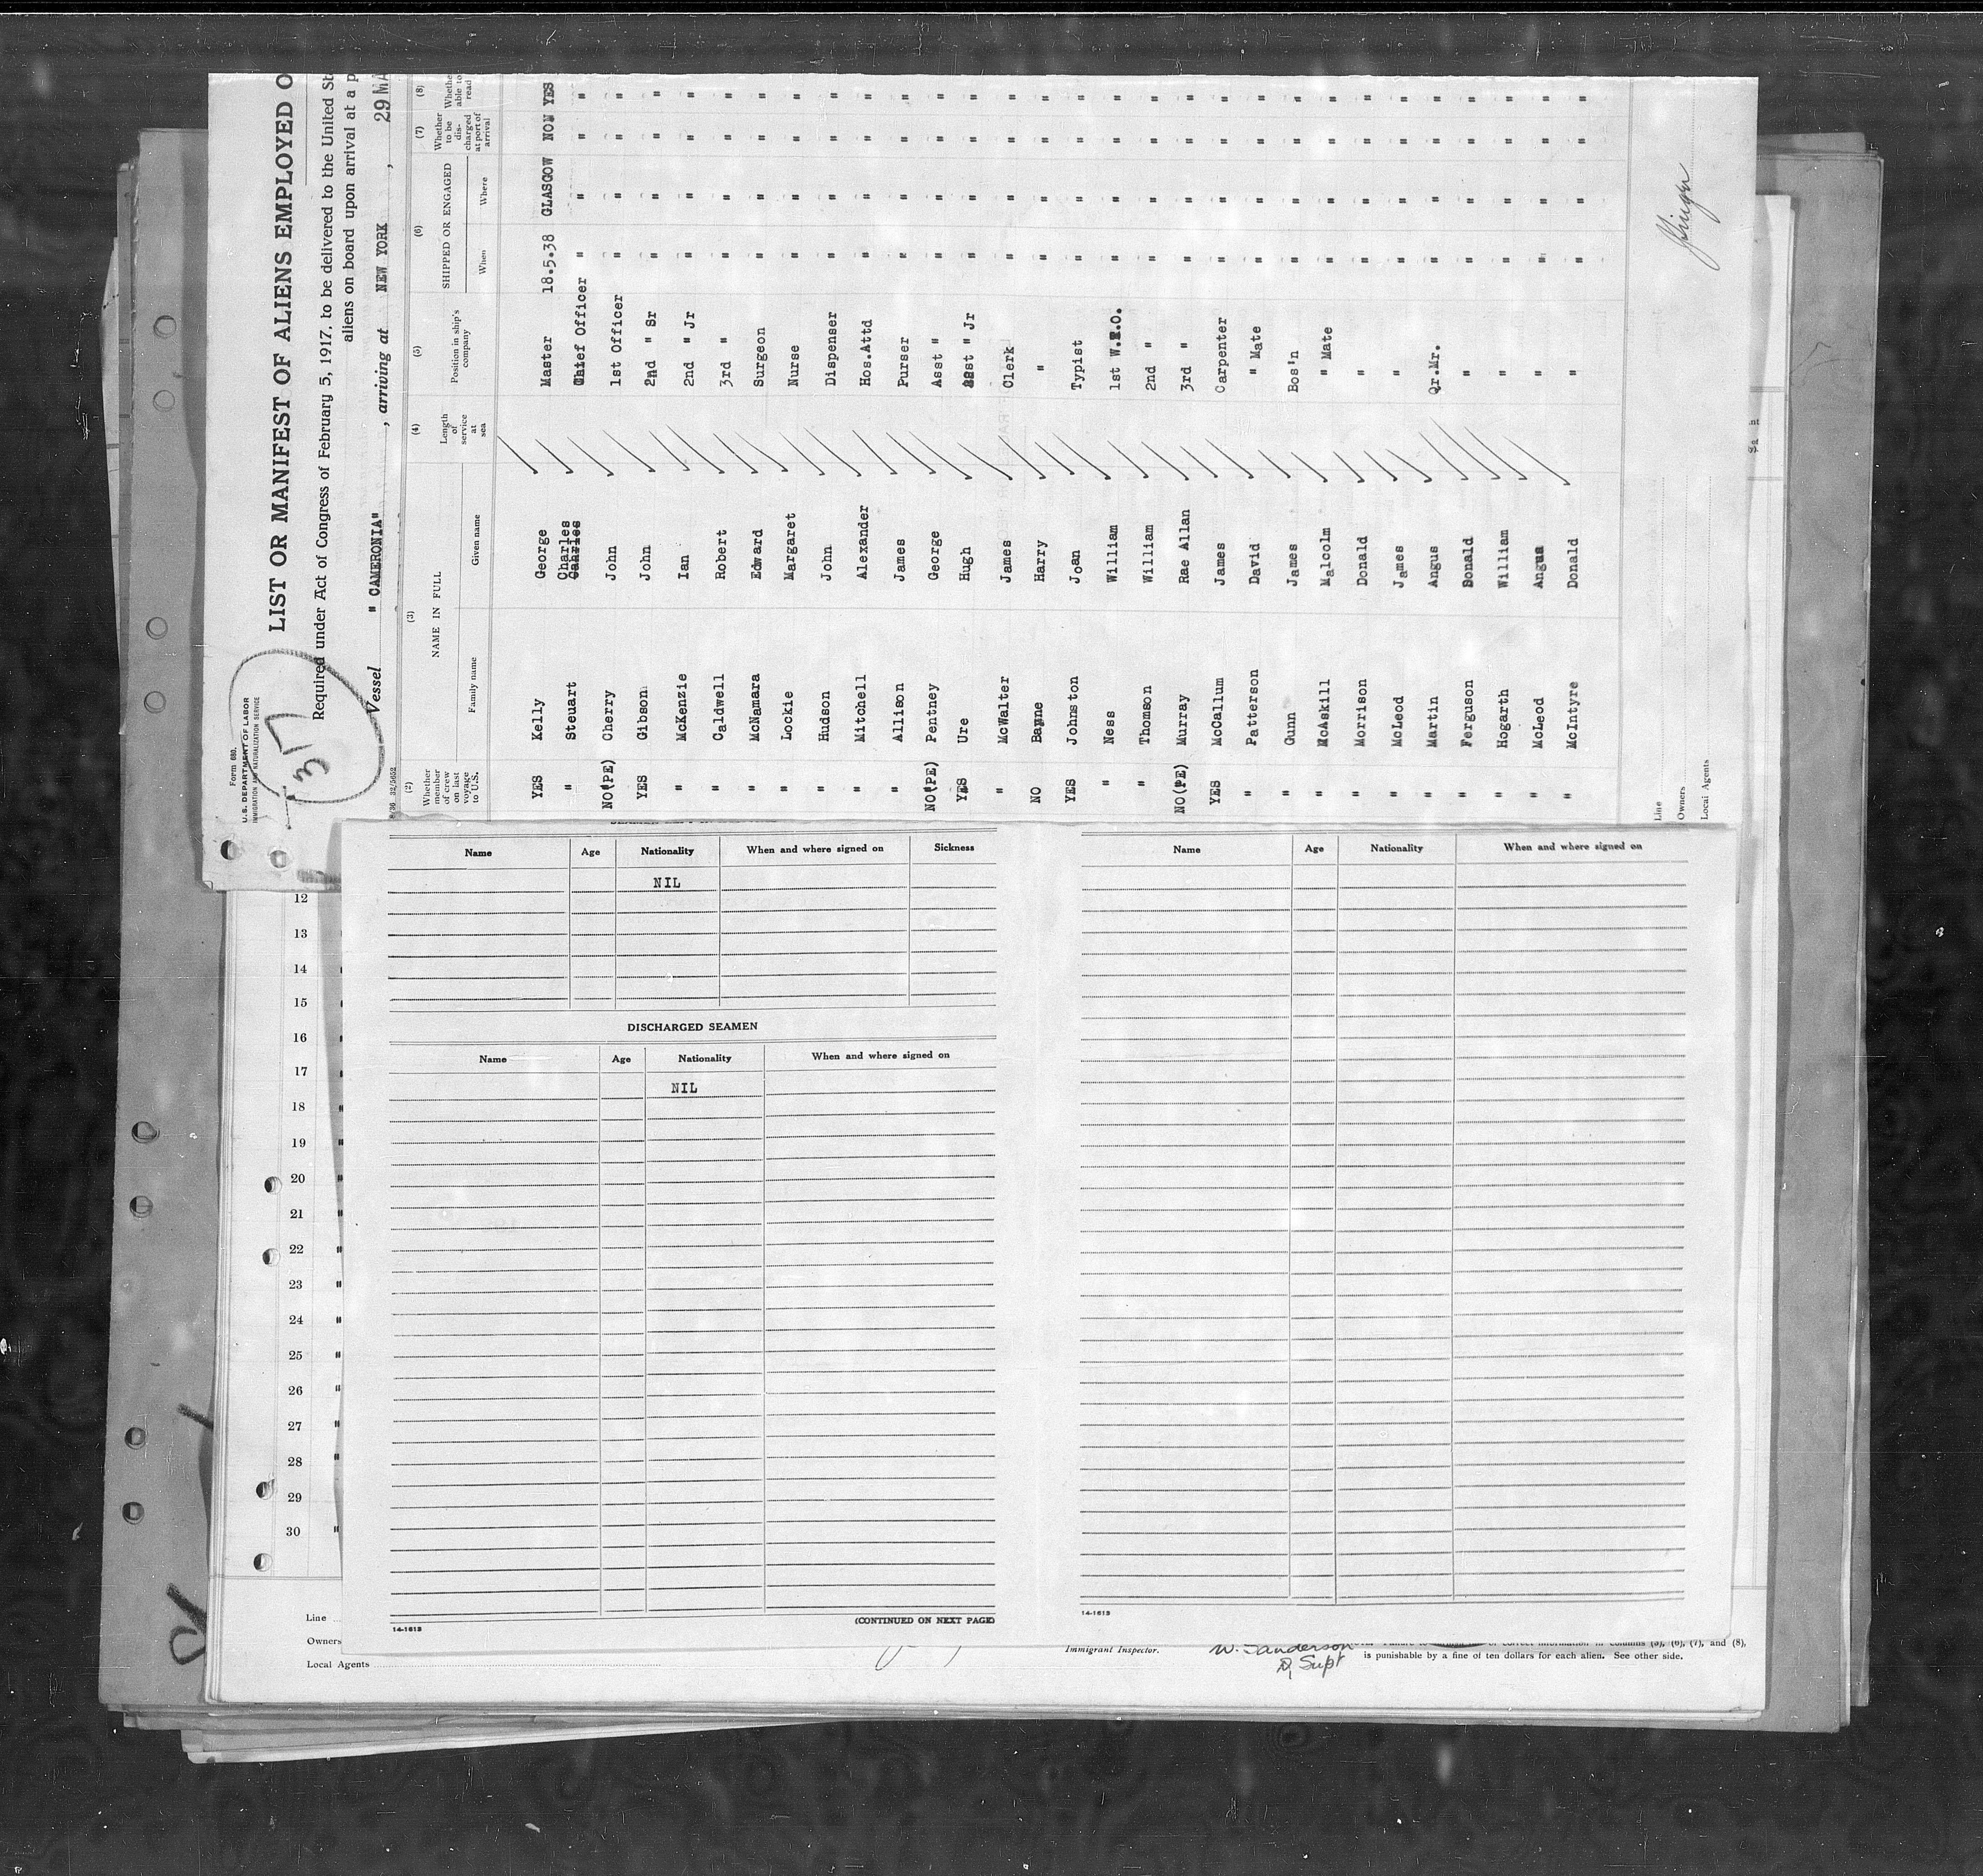 Form 680.
U.S. DEPARTMENT OF LABOR
IMMIGRATION AND NATURALIZATION SERVICE
LIST OR MANIFEST OF ALIENS EMPLOYED O
Required under Act of Congress of February 5, 1917, to be delivered to the United St
aliens on board upon arrival at a p
Vessel "CAMERONIA" , arriving at NEW YORK , 29 MA
(2) (3) (4) (5) (6) (7) (8)
Whether member of crew on last voyage to U.S. NAME IN FULL Family name Given name Length of service at sea Position in ship's company SHIPPED OR ENGAGED When Where Whether to be discharged at port of arrival Whether able to read
YES Kelly George Master 18.5.38 GLASGOW NON YES
" Steuart Charles Chief Officer " " " "
NO(PE) Cherry John 1st Officer " " " "
YES Gibson John 2nd " Sr " " " "
" McKenzie Ian 2nd " Jr " " " "
" Caldwell Robert 3rd " " " " "
" McNamara Edward Surgeon " " " "
" Lockie Margaret Nurse " " " "
" Hudson John Dispenser " " " "
" Mitchell Alexander Hos.Attd " " " "
" Allison James Purser " " " "
NO(PE) Pentney George Asst " " " " "
YES Ure Hugh Asst " Jr " " " "
" McWalter James Clerk " " " "
NO Bayne Harry " " " " "
YES Johnston Joan Typist " " " "
" Ness William 1st W.T.O. " " " "
" Thomson William 2nd " " " " "
NO(PE) Murray Rae Allan 3rd " " " " "
YES McCallum James Carpenter " " " "
" Patterson David " Mate " " " "
" Gunn James Bos'n " " " "
" McAskill Malcolm " Mate " " " "
" Morrison Donald " " " " "
" McLeod James " " " " "
" Martin Angus Qr.Mr. " " " "
" Ferguson Donald " " " " "
" Hogarth William " " " " "
" McLeod Angus " " " " "
" McIntyre Donald " " " " "
Line
Owners
Local Agents
Name Age Nationality When and where signed on Sickness
NIL
DISCHARGED SEAMEN
Name Age Nationality When and where signed on
NIL
(CONTINUED ON NEXT PAGE)
14-1613
Name Age Nationality When and where signed on
14-1613
12
13
14
15
16
17
18
19
20
21
22 "
23 "
24 "
25 "
26 "
27 "
28 "
29
30 "
Line
Owners
Local Agents
Immigrant Inspector.
W. Sanderson
D, Supt
of correct information in columns (3), (6), (7), and (8),
is punishable by a fine of ten dollars for each alien. See other side.